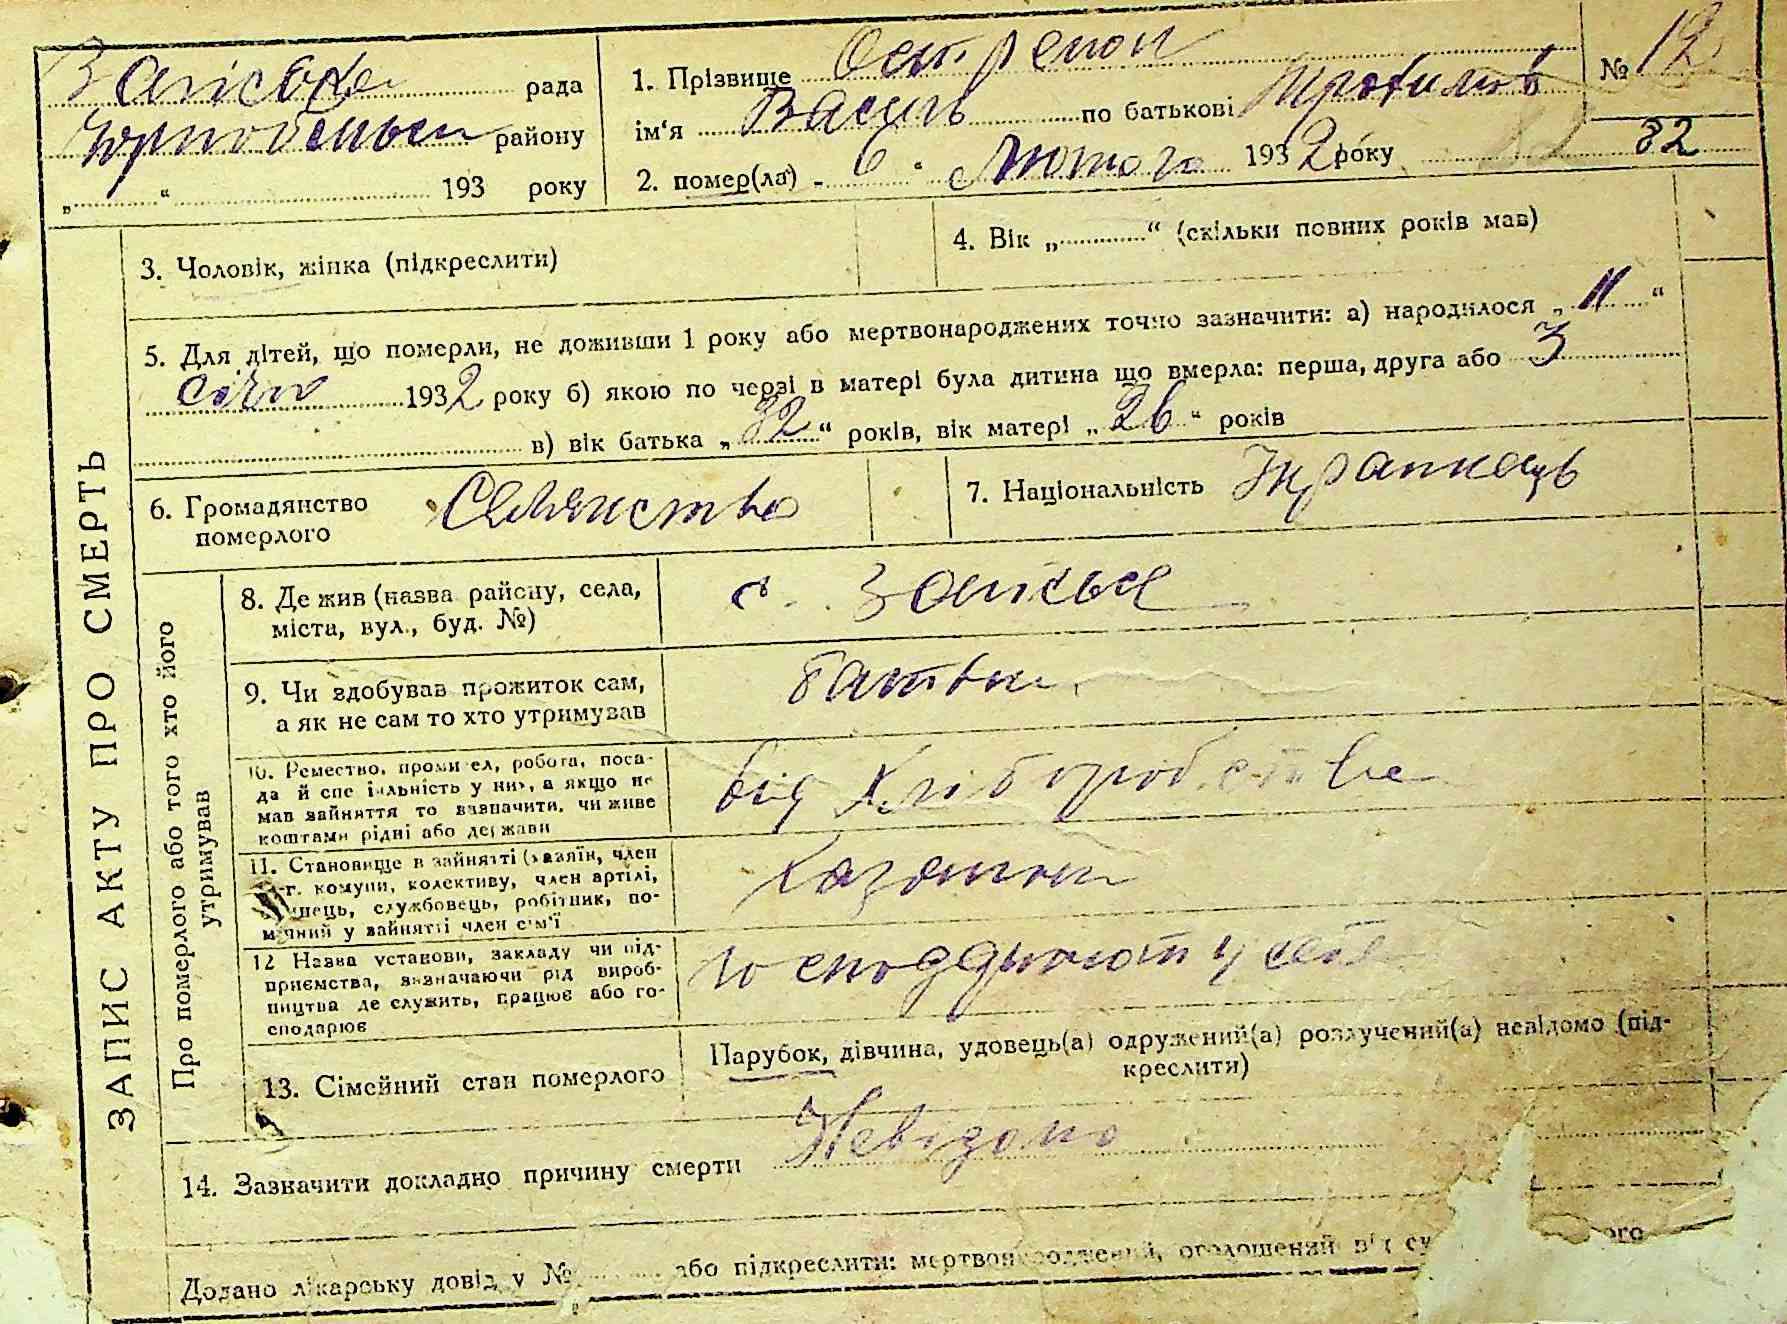 ЗАПИС АКТУ ПРО СМЕРТЬ
рада
району
„ “ 193 року
1. Прізвище
ім‘я Василь по батькові
2. помер(ла) „ 6 “ Лютого 1932 року
№ 12
32
3. Чоловік, жінка (підкреслити)
4. Вік „ “ (скільки повних років мав)
5. Для дітей, що померли, не доживши 1 року або мертвонароджених точно зазначити: а) народилося „ 11 “
січн 1932 року б) якою по черзі в матері була дитина що вмерла: перша, друга або 3
в) вік батька „ 32 “ років, вік матері „ 26 “ років
6. Громадянство
померлого
Селянство
7. Національність Українець
Про померлого або того хто його
утримував
8. Де жив (назва району, села,
міста, вул., буд. №)
с.
9. Чи здобував прожиток сам,
а як не сам то хто утримував
батьки
10. Ремество, промисел, робота, поса-
да й спеціяльність у них, а якщо не
мав зайняття то вазначити, чи живе
коштами рідні або держави
від Хліборобства
11. Становище в зайнятті (хазяїн, член
с.-г. комуни, колективу, член артілі,
службовець, робітник, по-
мічний у зайнятті член сім‘ї
12 Назва установи, закладу чи під-
приємства, визначаючи рід вироб-
ництва де служить, працює або го-
сподарює
у себе
13. Сімейний стан померлого
Парубок, дівчина, удовець(а) одружений(а) розлучений(а) невідомо (під-
креслити)
14. Зазначити докладно причину смерти Невідомо
Додано лікарську довід у № або підкреслити: мертвонароджений, оголошений від